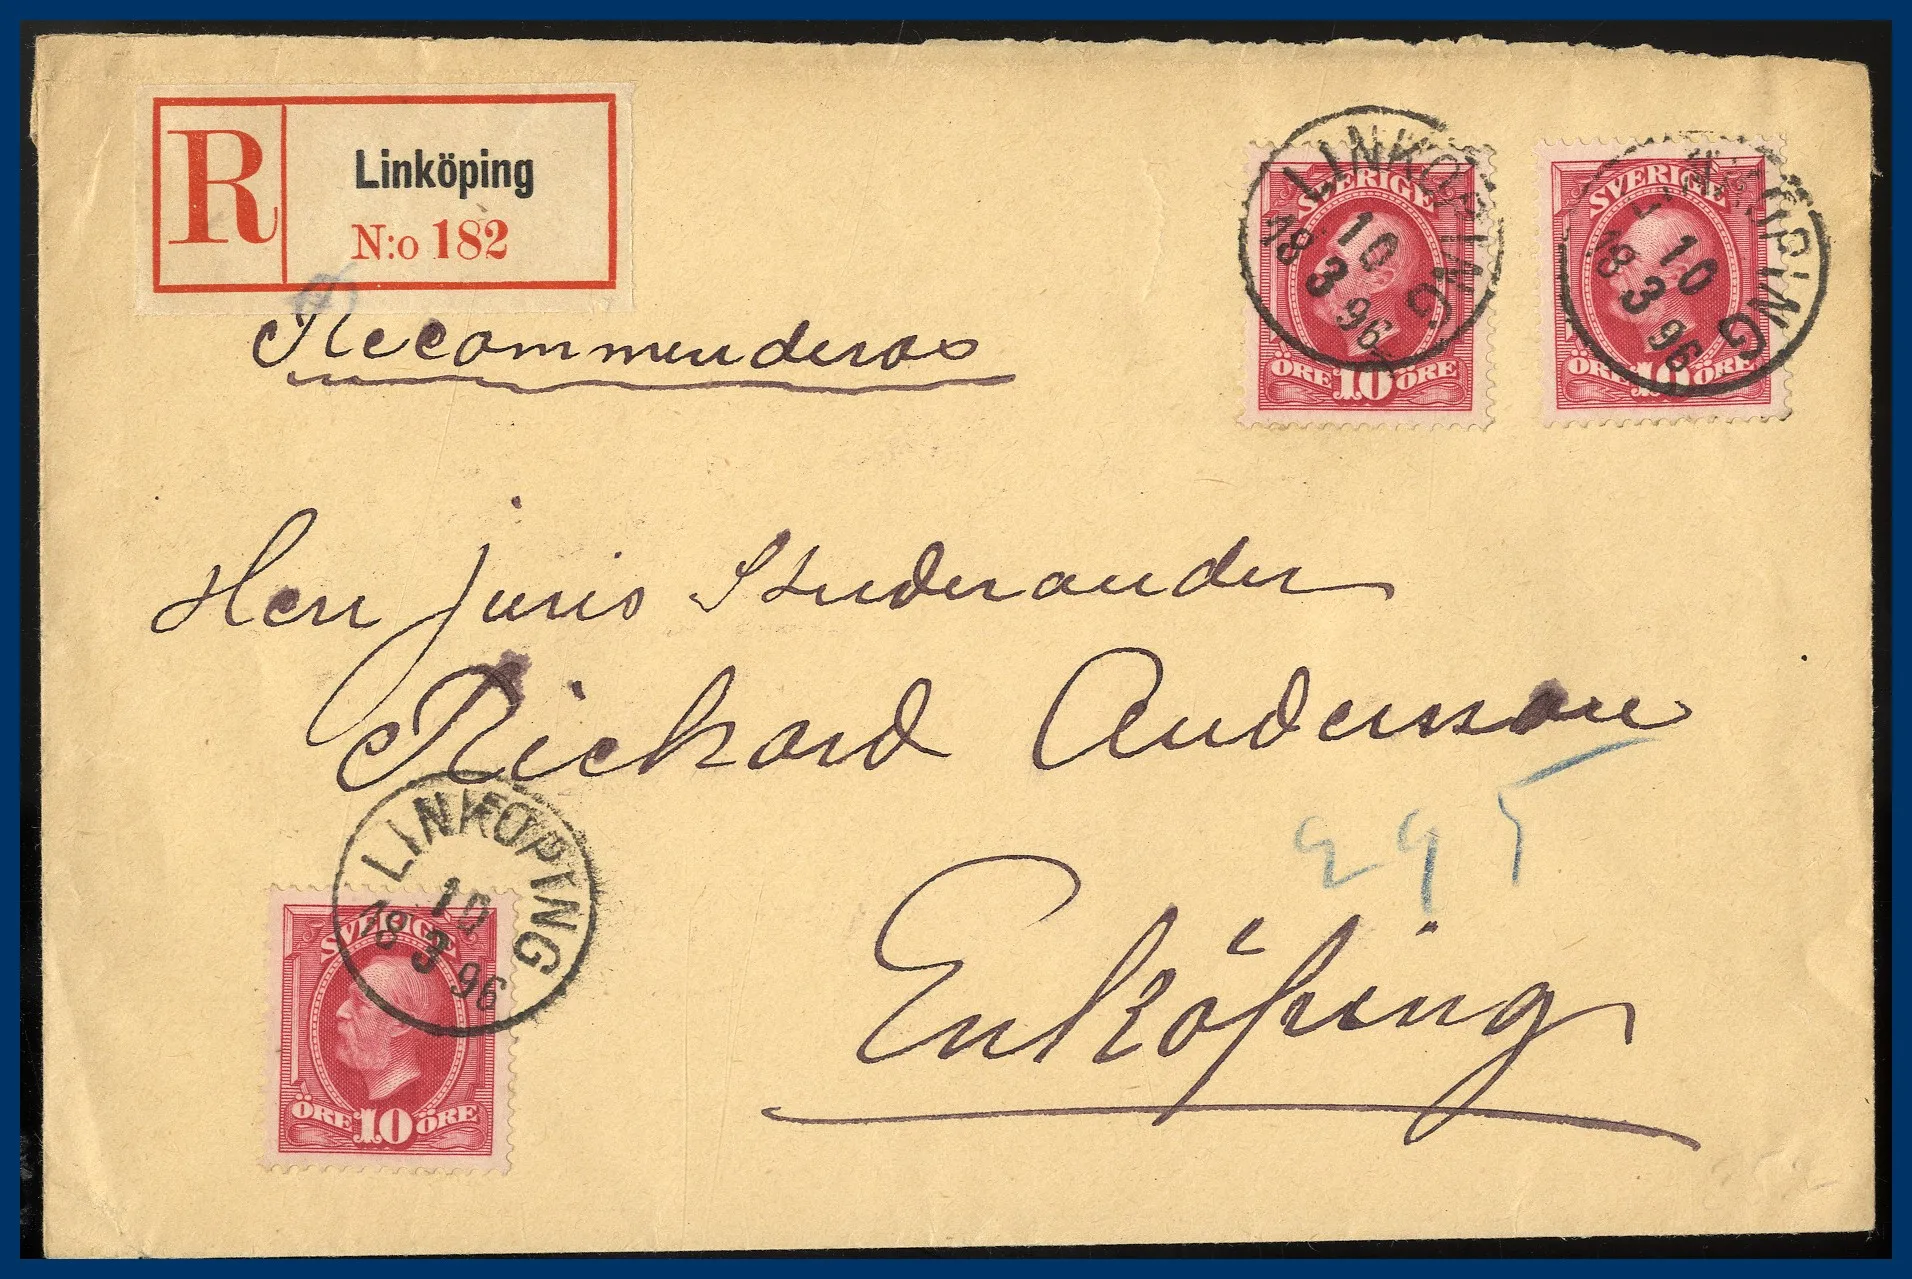 R
Linköping
N:o 182
LINKÖPING
10
18 3 96
SVERIGE
ÖRE 10 ÖRE
LINKÖPING
10
18 3 96
SVERIGE
ÖRE 10 ÖRE
Recommenderas
Herr Juris Studeranden
Rickard Andersson
295
Enköping
LINKÖPING
10
18 3 96
SVERIGE
ÖRE 10 ÖRE